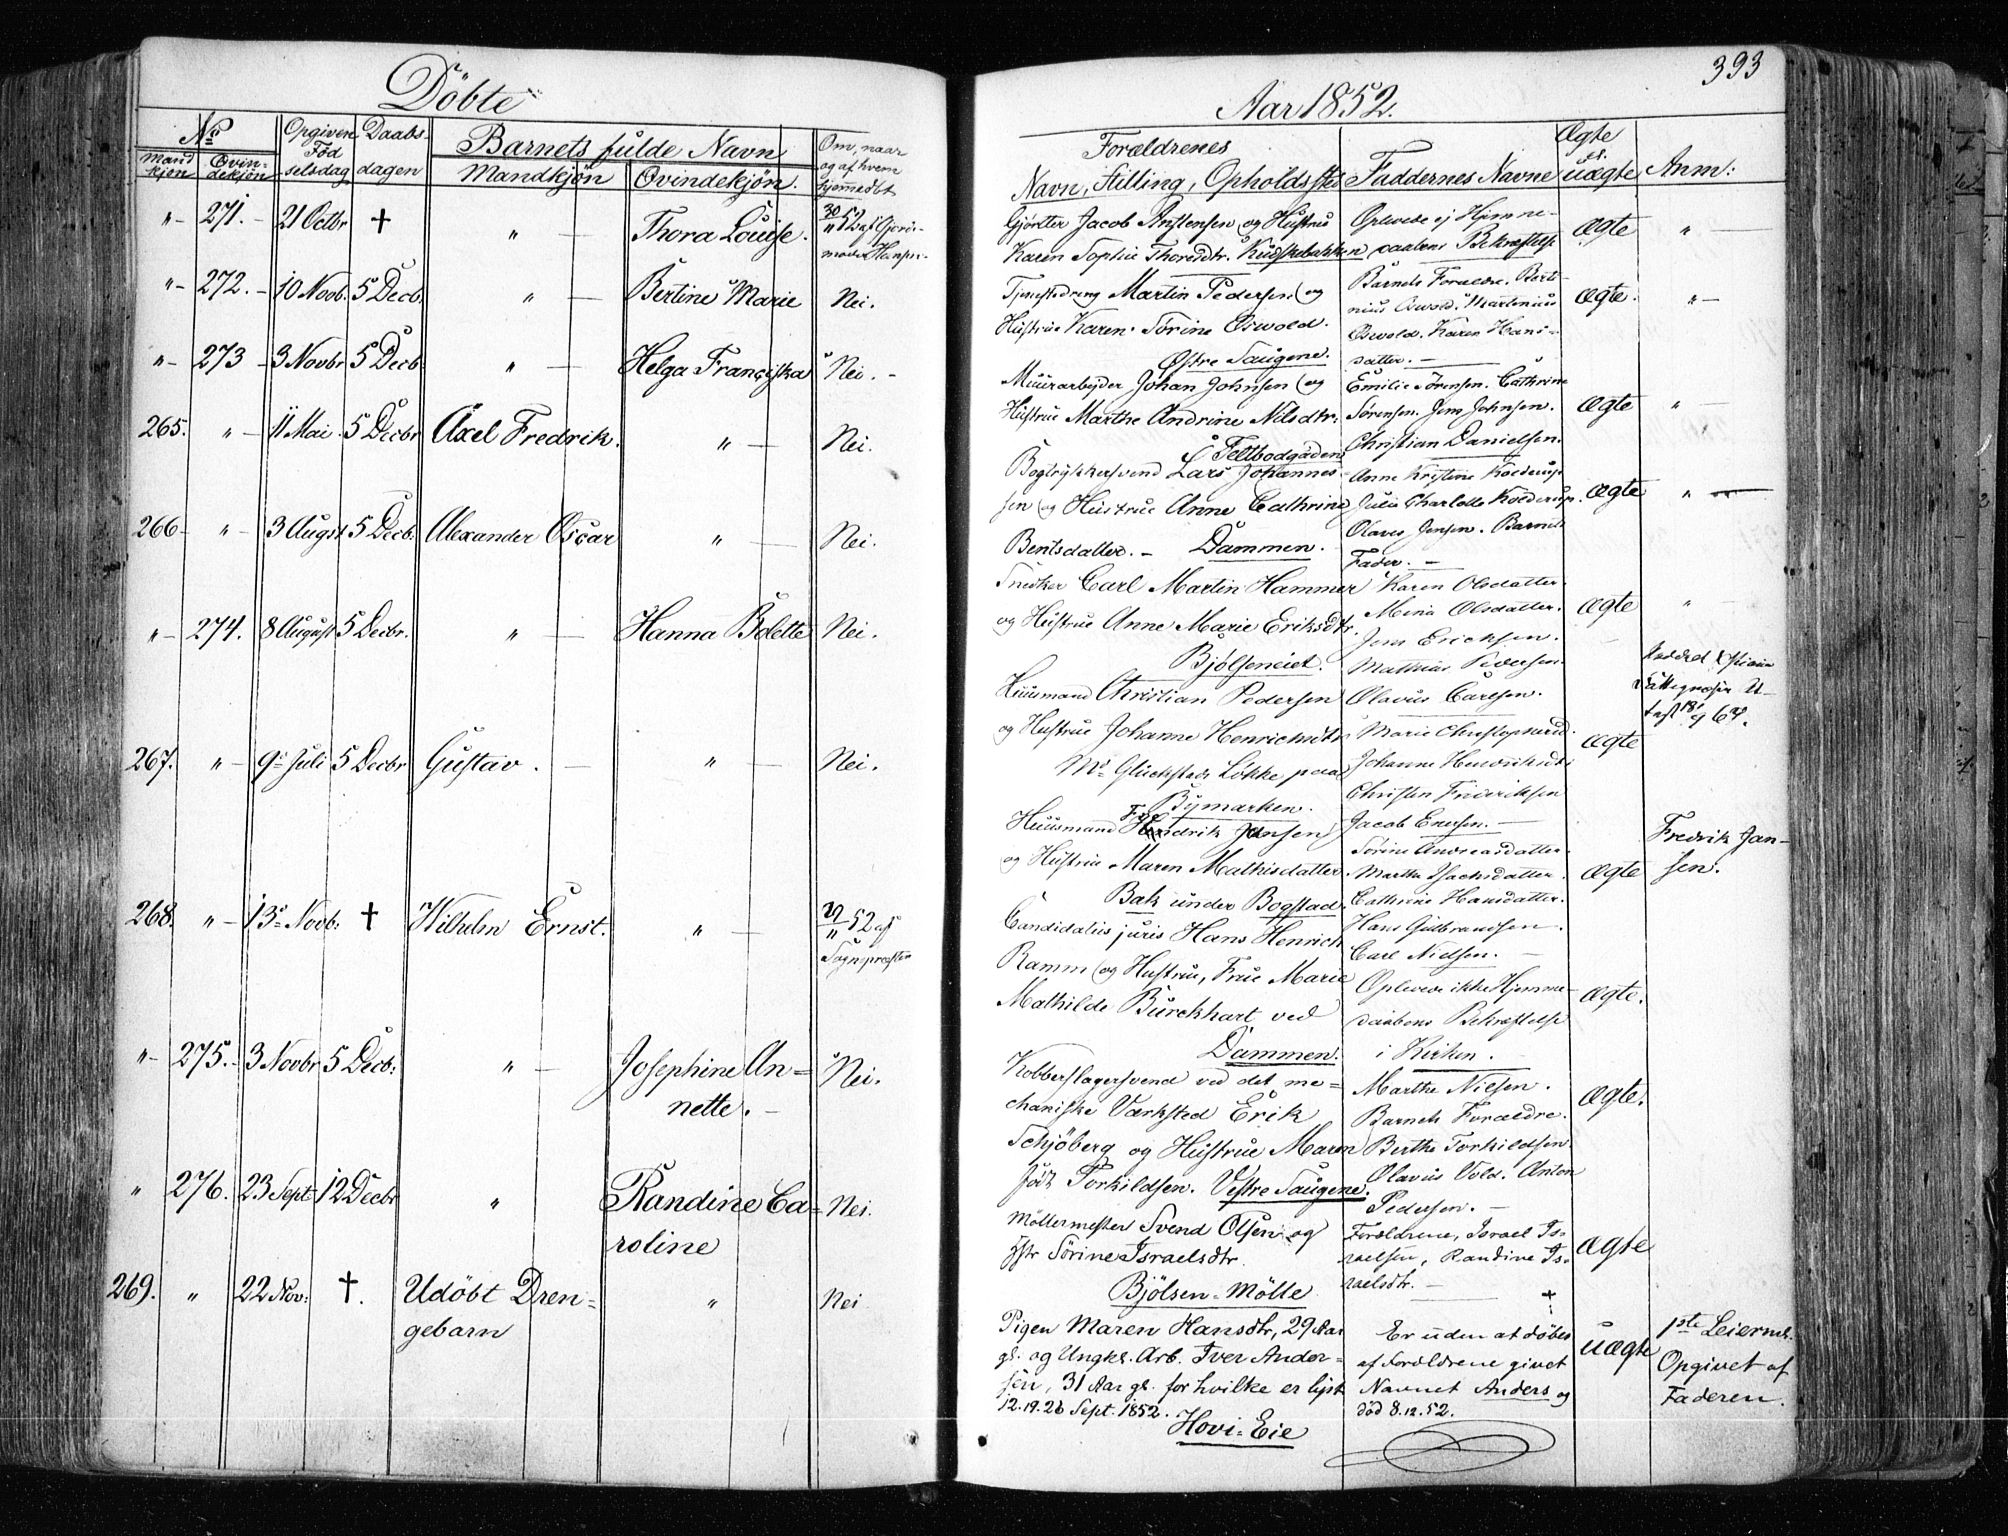 Döbte
No
Mand
kjön
Qvin-
dekjön
Opgiven
Föd
selsdag
Daabs-
dagen
Barnets fulde Navn
Mandkjön
Qvindekjön.
Om, naar
og af hvem
hjemmedöbt
„ 271. 21 Octbr † „ Thora Louise. 30/11 52 af Gjorde-
moder Hansen.
„ 272. 10 Novb. 5 Decb. „ Bertine Marie Nei.
„ 273 3 Novbr 5 Decb. „ Helga Franciska Nei.
265. „ 11 Mai. 5 Decbr Axel Fredrik. „ Nei.
266 „ 3 Augst 5 Decb. Alexander Oscar „ Nei.
„ 274. 8 August 5 Decbr. „ Hanna Bolette Nei.
267. „ 9 Juli 5 Decbr Gustav. „ Nei.
268. „ 13 Novb: † Wilhelm Ernst. „ 52 af
Sognepræsten
„ 275. 3 Novbr 5 Decb: „ Josephine An-
nette. Nei.
„ 276. 23 Sept 12 Decbr „ Randine Ca-
roline Nei.
269. „ 22 Nov: †. Udöbt Dren-
gebarn „ Nei
393
Aar 1852.
Forældrenes
Navn, Stilling, Opholdssted
Faddernes Navne
Ægte
el.
uægte
Anm:
Gjörtler Jacob Anstensen og Hustrue
Karen Sophie Thoresdtr. Kudskebakken
Oplevede ej Hjemme-
daabens Bekræftelse
Ægte
„
Tjenestedreng Martin Pedersen og
Hustrue Karen Sörine Oswold.
Östre Saugene.
Barnets Forældre. Berti-
nius Oswold. Martinius
Oswold. Karen Hans-
datter.
Ægte.
„
Muurarbeider Johan Johnsen og
Hustrue Marthe Andrine Nilsdtr:
Feltbodgaden
Emilie Sörensen. Cathrine
Sörensen. Jens Johnsen.
Christian Danielsen.
Ægte
„
Bogtrykkersvend Lars Johannes-
sen og Hustrue Anne Cathrine
Bentsdatter. Dammen.
Anne Kristine Kolderup
Julie Charlotte Kolderup.
Olaves Jensen. Barnets
Fader.
Ægte
„
Snedker Carl Martin Hammer
og Hustrue Anne Marie Eriksdtr.
Bjölseneiet.
Karen Olsdatter.
Mina Olsdatter.
Jens Ericksen.
Mathias Pedersen.
Olavus Carlsen.
Ægte
„
Huusmand Christian Pedersen
og Hustrue Johanne Henrichsdtr
Glückstads Lökke paa
Bymarken.
Marie
Johanne
Christen Frideriksen
Jacob Enersen.
Ægte
Huusmand Fredrik Jansen
og Hustrue Maren Mathisdatter
Bak under Bogstad
Sörine Andreasdatter.
Marthe Isachsdatter.
Cathrine Hansdatter.
Hans Gulbrandsen.
Carl Nielsen.
Ægte
Fredrik Jan-
sen.
Candidatus juris Hans Henrich
Ramm og Hustrue, Frue Marie
Mathilde Burckhart ved
Dammen.
Oplevede ikke Hjemme-
daabens Bekræftelse
i Kirken.
Ægte.
Kobberslagersvend ved det me-
chaniske Værksted Erik
Schjöberg og Hustrue Maren
Torkildsen. Vestre Saugene.
Marthe Nielsen.
Barnets Forældre.
Berthe Torkildsen
Olavus Vold. Anton
Pedersen.
Ægte.
Möllermester Svend Olsen og
Hstr Sörine Israelsdtr.
Bjölsen-Mölle
Forældrene, Israel Is-
raelsen, Randine Is-
raelsdtr.
Ægte
Pigen Maren Hansdtr, 29 Aar
gl. og Ungkl. Arb. Iver Ander-
sen, 31 Aar gl. for hvilke er lyst
12.19.26 Sept. 1852.
Hovi-Eie
†
Er uden at döbes
af Forældrene givet
Navnet Anders og
död 8.12.52.
uægte
1ste Leierm.
Opgivet af
Faderen.